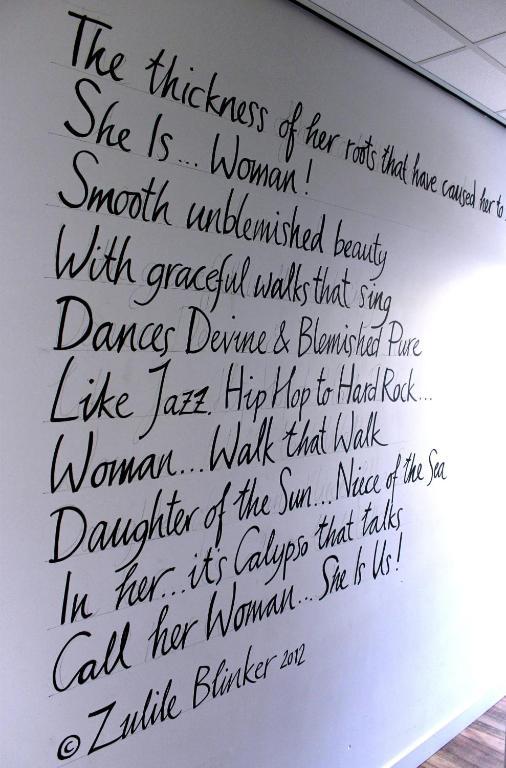 The thickness of her roots that have caused her to
She Is... Woman!
Smooth unblemished beauty
With graceful walks that sing
Dances Devine & Blemished Pure
Like Jazz. Hip Hop to Hard Rock...
Woman... Walk that Walk
Daughter of the Sun... Niece of the Sea
In her... it's Calypso that talks
Call her Woman... She Is Us!
© Zulile Blinker 2012